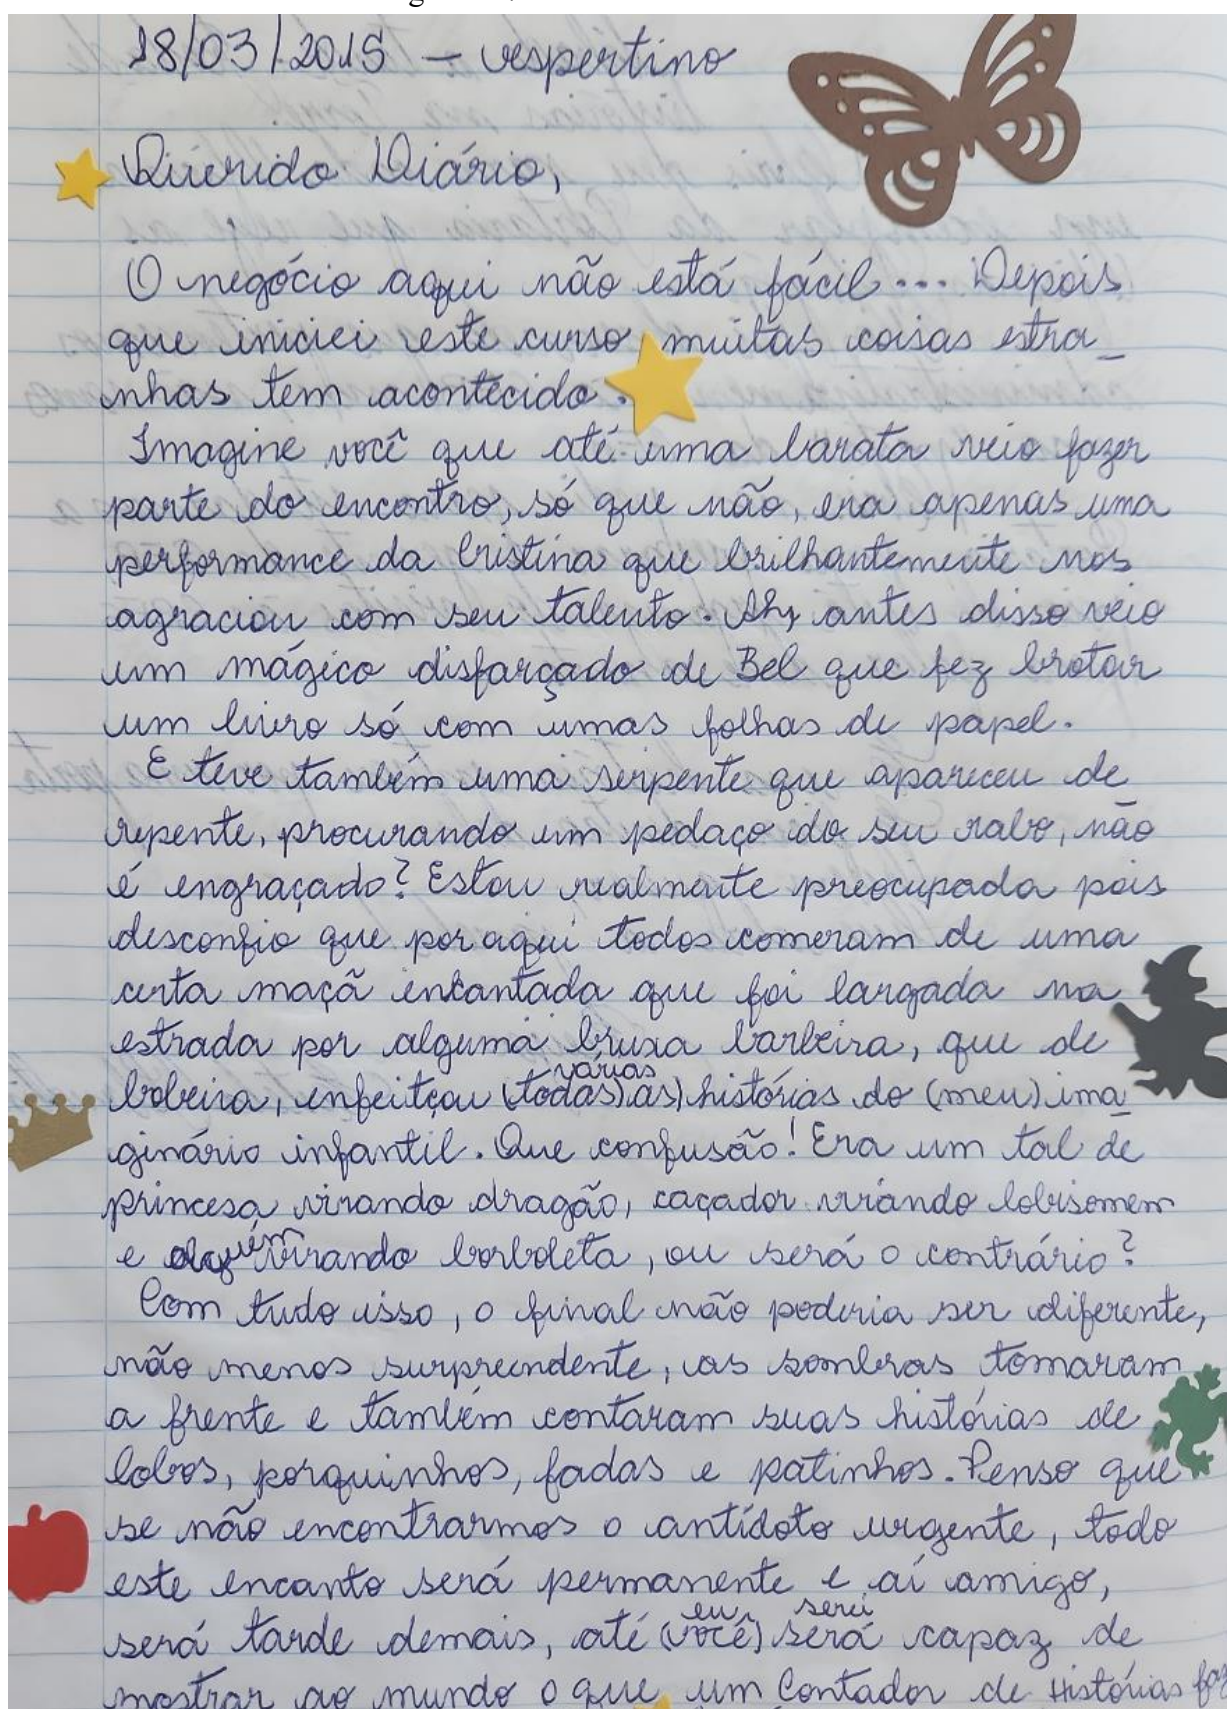 18/03/2015 - vespertino
Querido Diário,
O negócio aqui não está fácil... Depois
que iniciei este curso, muitas coisas estra_
nhas tem acontecido.
Imagine você que até uma barata veio fazer
parte do encontro, só que não, era apenas uma
performance da Cristina que brilhantemente nos
agraciou com seu talento. Ah, antes disso veio
um mágico disfarçado de Bel que fez brotar
um livro só com umas folhas de papel.
E teve também uma serpente que apareceu de
repente, procurando um pedaço do seu rabo, não
é engraçado? Estou realmente preocupada pois
desconfio que por aqui todos comeram de uma
certa maçã encantada que foi largada na
estrada por alguma bruxa barbeira, que de
várias
bobeira, enfeitçou (todas)(as) histórias do (meu) ima_
ginário infantil. Que confusão! Era um tal de
princesa virando dragão, caçador virando lobisomem
e alguém virando borboleta, ou será o contrário?
Com tudo isso, o final não poderia ser diferente,
não menos surpreendente, as sombras tomaram
a frente e também contaram suas histórias de
lobos, porquinhos, fadas e patinhos. Penso que
se não encontrarmos o antídoto urgente, todo
este encanto será permanente e aí amigo,
eu serei
será tarde demais, até (você) será capaz de
mostrar ao mundo o que um Contador de Histórias faz